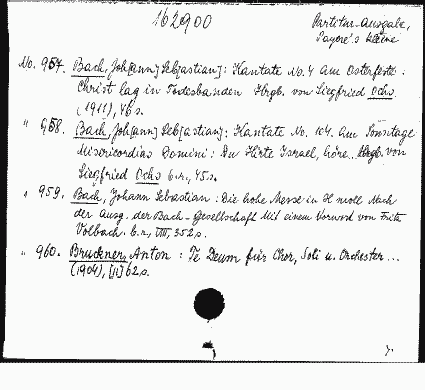 162900
Partitur-Ausgabe,
Payne's kleine
No. 957. Bach, Joh[ann] Seb[astian]: Kantate No. 4 am Osterfeste:
Christ lag in Todesbanden Hrgb. von Siegfried Ochs.
(1911), 46 s.
" 958. Bach, Joh[ann] Seb[astian]: Kantate No. 104. am Sonntage
Misericordias Domini: Du Hirte Israel, höre. Hrgb. von
Siegfried Ochs o.n., 45 s.
" 959. Bach, Johann Sebastian: Die hohe Messe in H moll Nach
der Ausg. der Bach-Gesellschaft Mit einem Vorword von Fritz
Volbach. o.n., VIII, 352 s.
" 960. Bruckner, Anton: Te Deum für Chor, Soli u. Orchester...
(1904), [II] 62 s.